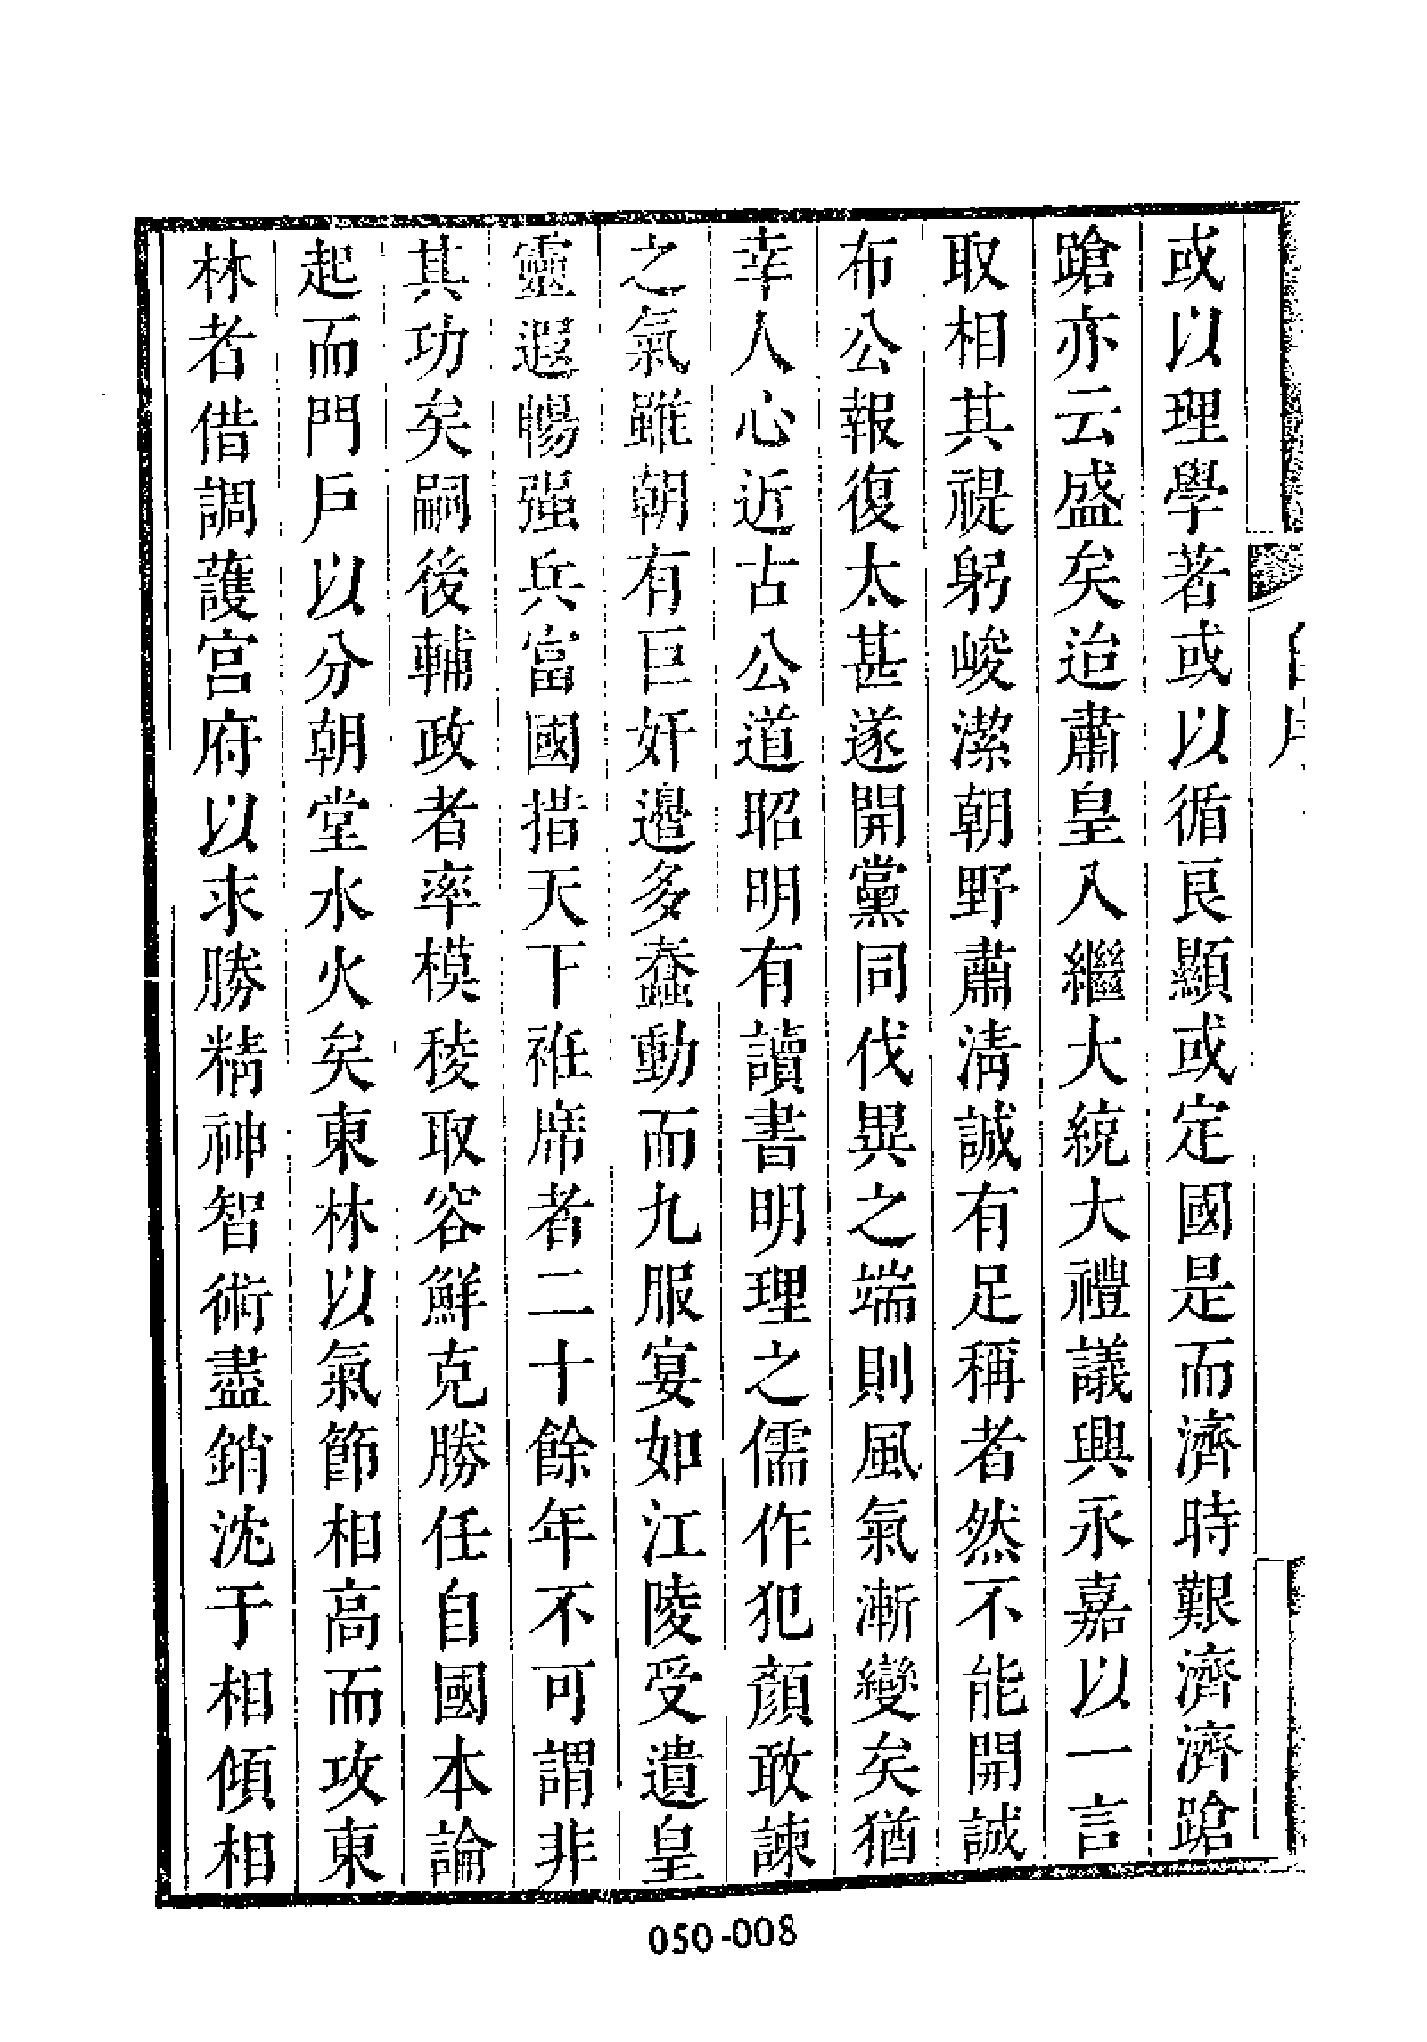 或以理學著或以循良顯或定國是而濟時艱濟濟蹌
蹌亦云盛矣迨肅皇入繼大統大禮議興永嘉以一言
取相其禔躬峻潔朝野肅淸誠有足稱者然不能開誠
布公報復太甚遂開黨同伐異之端則風氣漸變矣猶
幸人心近古公道昭明有讀書明理之儒作犯顏敢諫
之氣雖朝有巨奸邊多蠢動而九服宴如江陵受遺皇
靈遐暢强兵富國措天下袵席者二十餘年不可謂非
其功矣嗣後輔政者率模稜取容鮮克勝任自國本論
起而門戶以分朝堂水火矣東林以氣節相高而攻東
林者借調護宮府以求勝精神智術盡銷沈于相傾相
050-008